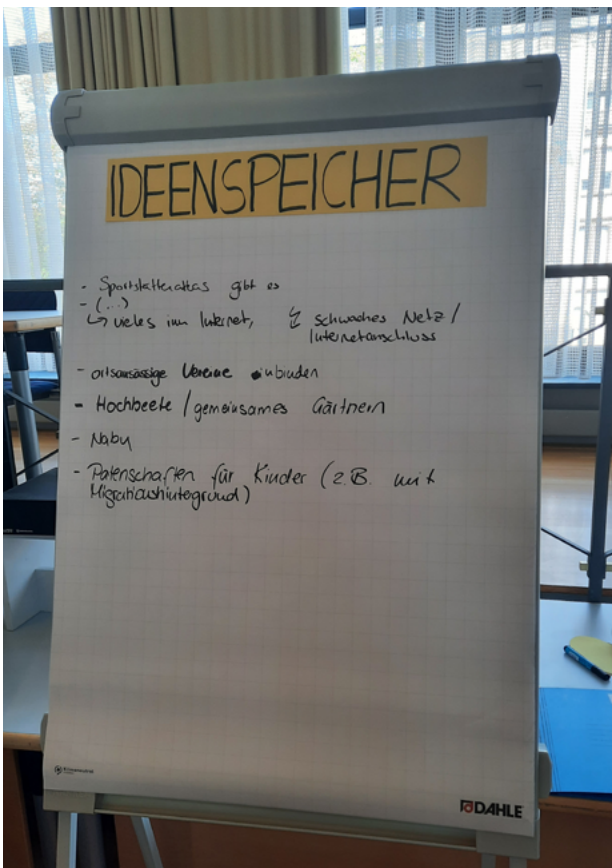 IDEENSPEICHER
- Sportstättenatlas gibt es
- (...)
↳ vieles im Internet, ↯ schwaches Netz /
Internetanschluss
- ortsansässige Vereine einbinden
- Hochbeete / gemeinsames Gärtnern
- Nabu
- Patenschaften für Kinder (z.B. mit
Migrationshintegrund)
DAHLE